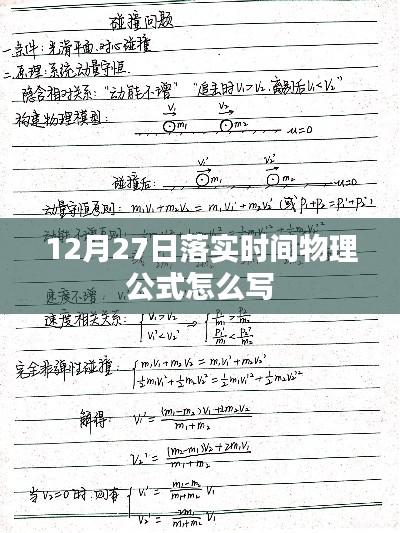 碰撞问题
一.条件:光滑平面.对心碰撞
二.原理:系统动量守恒.
隐含相对关系:"动能不增" "追击时V₁>V₂.离别后V₁<V₂"
构建物理模型:
V₁ V₂
m₁ m₂ u=0
V₁' V₂'
碰撞后: m₁ m₂ u=0
动量守恒原则: m₁V₁+m₂V₂ = m₁V₁'+m₂V₂' (或 P₁+P₂=P₁'+P₂')
12月27日落实时间物理
公式怎么写
速度相关关系: { V₁>V₂ V₁'<V₂' ⇒ { P₁/m₁ > P₂/m₂ P₁'/m₁ < P₂'/m₂
完全非弹性碰撞: { m₁V₁+m₂V₂ = m₁V₁'+m₂V₂'
½m₁V₁²+½m₂V₂² = ½m₁V₁'²+½m₂V₂'²
解得: V₁' = (m₁-m₂)V₁+2m₂V₂ / m₁+m₂
V₂' = (m₂-m₁)V₂+2m₁V₁ / m₁+m₂
当V₂=0时: { V₁' = m₁-m₂ / m₁+m₂ V₁
V₂' = 2m₁ / m₁+m₂ V₁